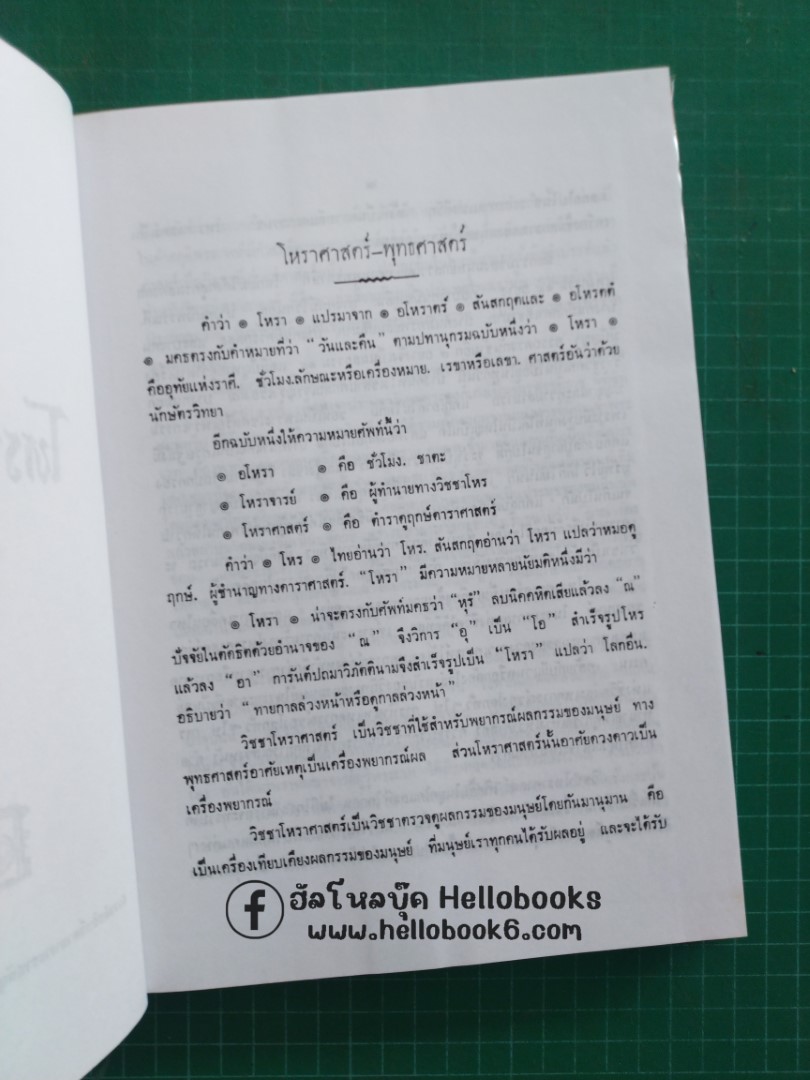 โหราศาสตร์–พุทธศาสตร์
คำว่า ๏ โหรา ๏ แปรมาจาก ๏ อโหราตร์ ๏ สันสกฤตและ ๏ อโหรตตํ
๏ มคธตรงกับคำหมายที่ว่า “วันและคืน” ตามปทานุกรมฉบับหนึ่งว่า ๏ โหรา ๏
คืออุทัยแห่งราศี. ชั่วโมง.ลักษณะหรือเครื่องหมาย. เรขาหรือเลขา. ศาสตร์อันว่าด้วย
นักษัตรวิทยา
อีกฉบับหนึ่งให้ความหมายศัพท์นี้ว่า
๏ อโหรา ๏ คือ ชั่วโมง. ชาตะ
๏ โหราจารย์ ๏ คือ ผู้ทำนายทางวิชชาโหร
๏ โหราศาสตร์ ๏ คือ ตำราดูฤกษ์ดาราศาสตร์
คำว่า ๏ โหร ๏ ไทยอ่านว่า โหร. สันสกฤตอ่านว่า โหรา แปลว่าหมอดู
ฤกษ์. ผู้ชำนาญทางดาราศาสตร์. “โหรา” มีความหมายหลายนัยมติหนึ่งมีว่า
๏ โหรา ๏ น่าจะตรงกับศัพท์มคธว่า “หุรํ” ลบนิคคหิตเสียแล้วลง “ณ”
ปัจจัยในตัทธิตด้วยอำนาจของ “ณ” จึงวิการ “อุ” เป็น “โอ” สำเร็จรูปโหร
แล้วลง “อา” การันต์ปถมาวิภัตตินามจึงสำเร็จรูปเป็น “โหรา” แปลว่า โลกอื่น.
อธิบายว่า “ทายกาลล่วงหน้าหรือดูกาลล่วงหน้า”
วิชชาโหราศาสตร์ เป็นวิชชาที่ใช้สำหรับพยากรณ์ผลกรรมของมนุษย์ ทาง
พุทธศาสตร์อาศัยเหตุเป็นเครื่องพยากรณ์ผล ส่วนโหราศาสตร์นั้นอาศัยดวงดาวเป็น
เครื่องพยากรณ์
วิชชาโหราศาสตร์เป็นวิชชาตรวจดูผลกรรมของมนุษย์โดยกันมานุมาน คือ
เป็นเครื่องเทียบเคียงผลกรรมของมนุษย์ ที่มนุษย์เราทุกคนได้รับผลอยู่ และจะได้รับ
ฮัลโหลบุ๊ค Hellobooks
www.hellobook6.com